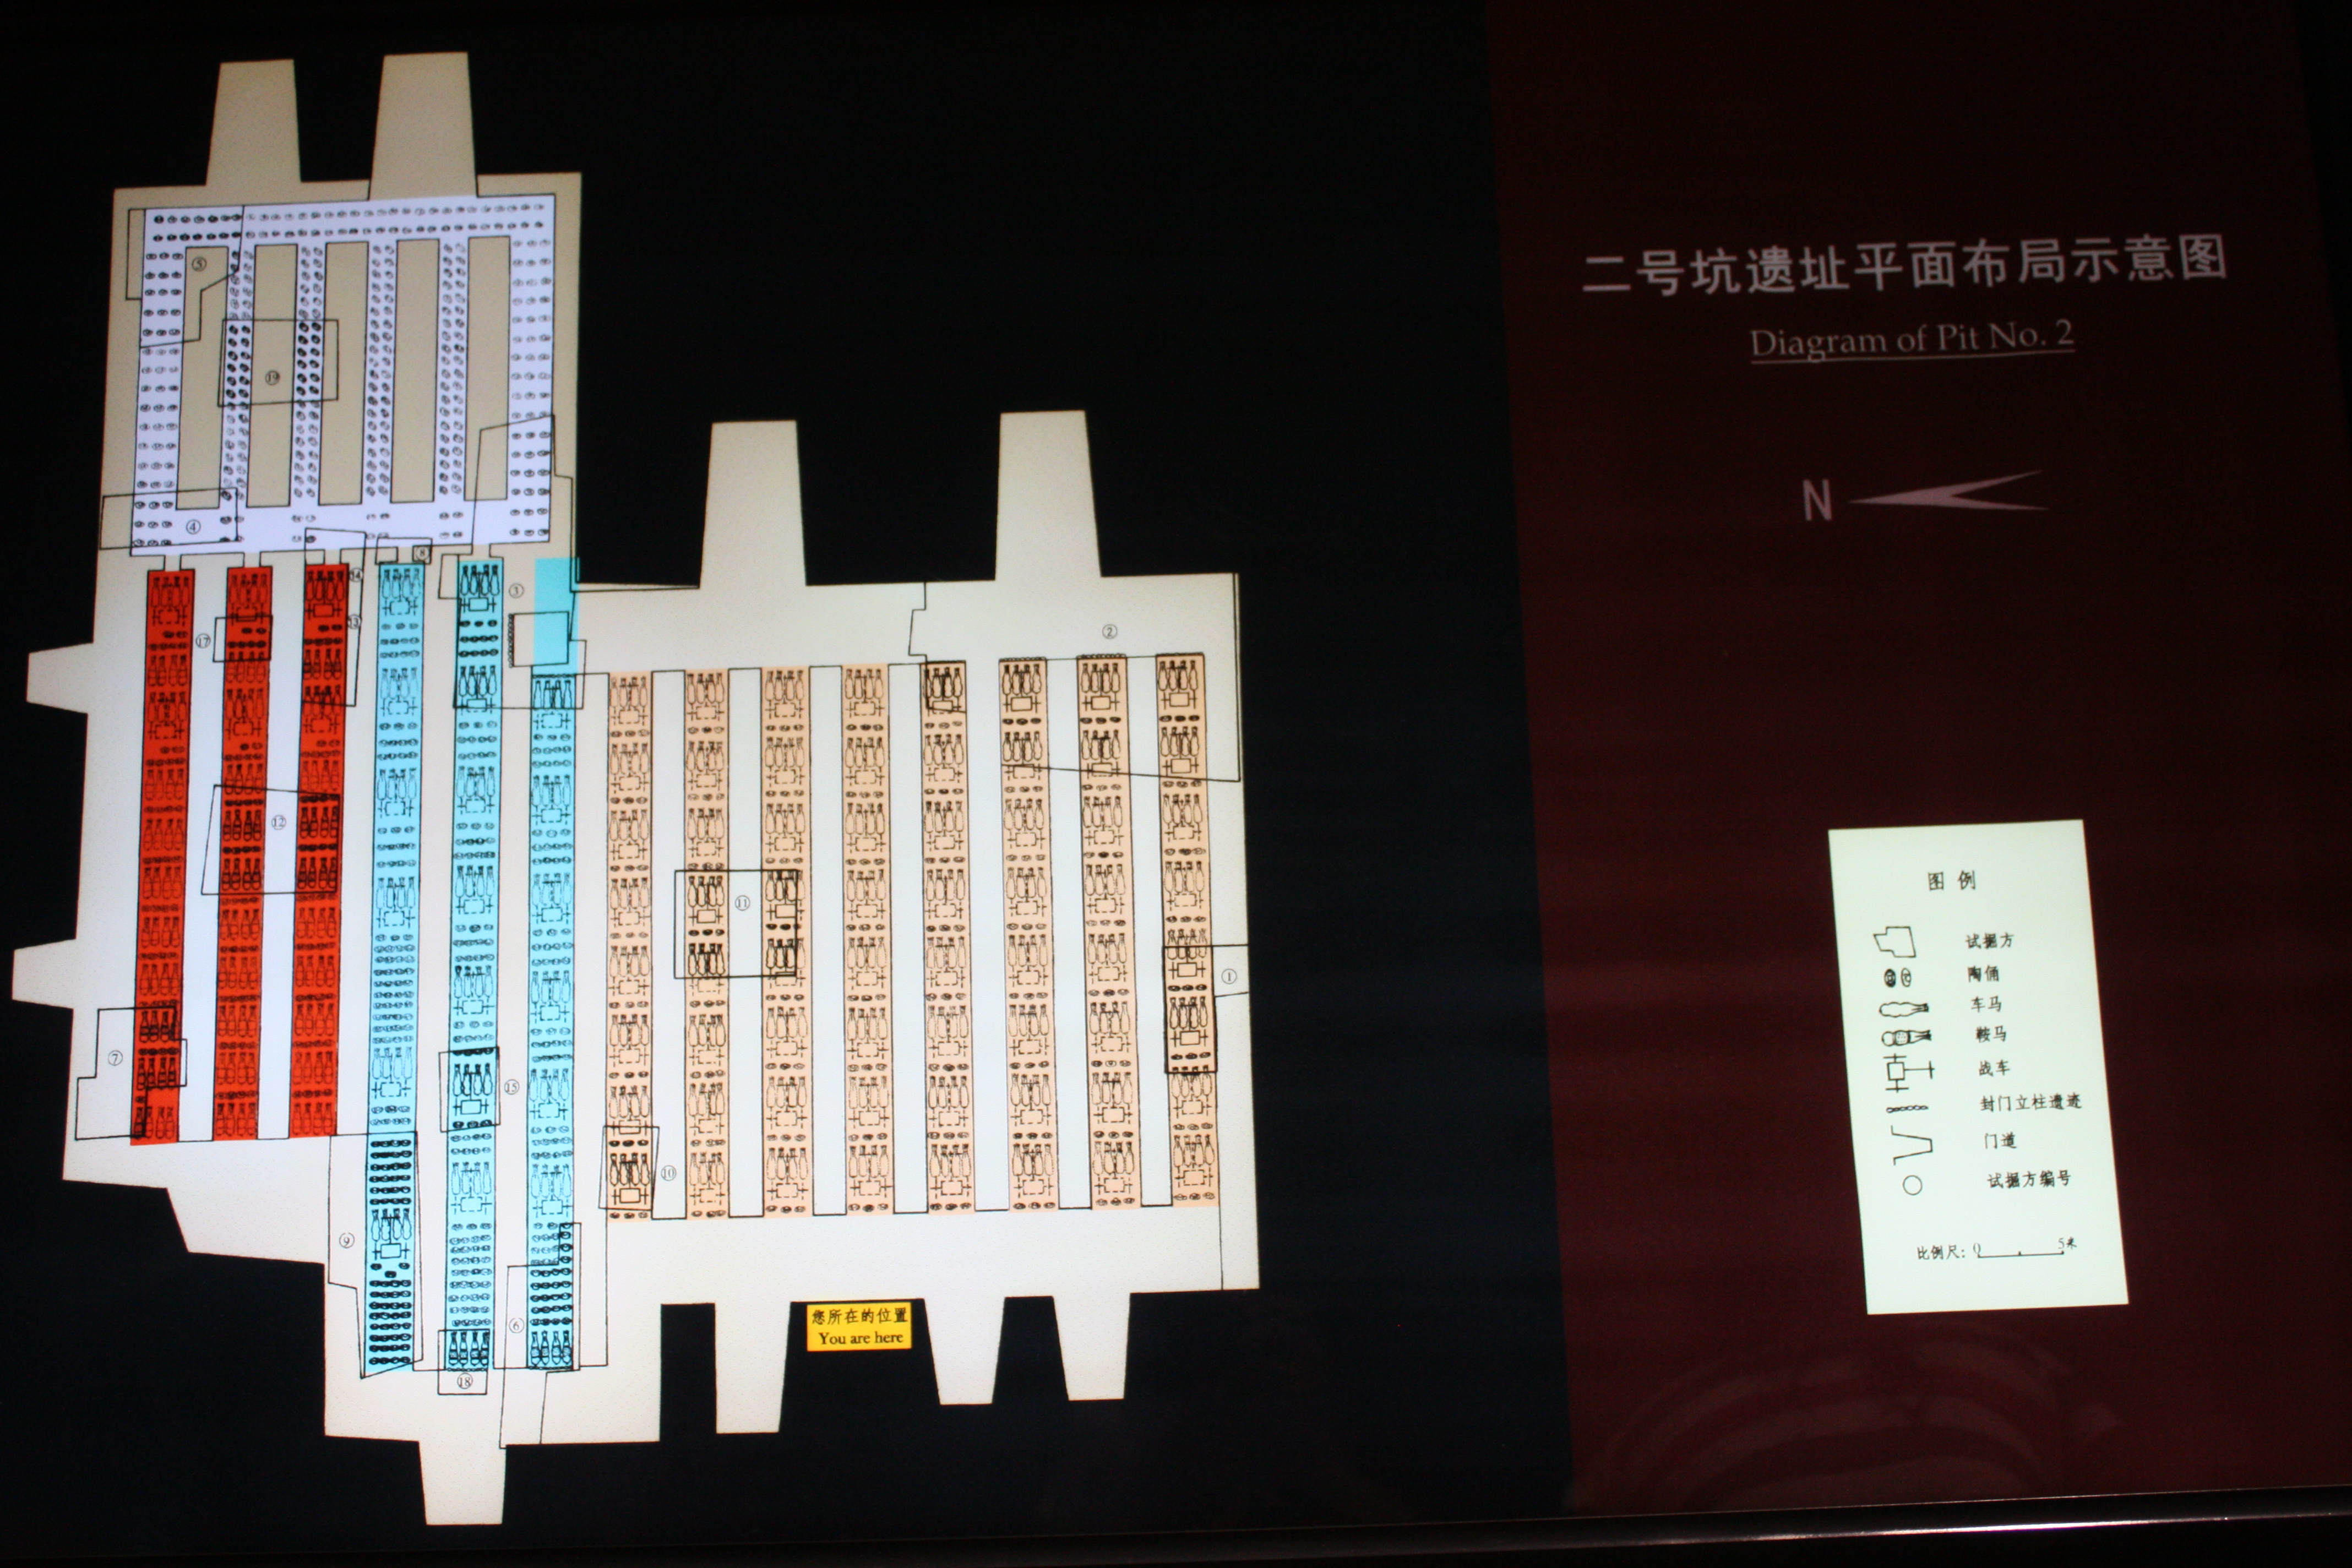 二号坑遗址平面布局示意图
Diagram of Pit No. 2
N
⑤
⑲
④
⑧
⑭
⑬
③
⑰
②
⑫
⑪
①
⑦
⑮
⑩
⑨
⑥
⑱
您所在的位置
You are here
图例
试掘方
陶俑
车马
鞍马
战车
封门立柱遗迹
门道
试掘方编号
比例尺: 0 5米